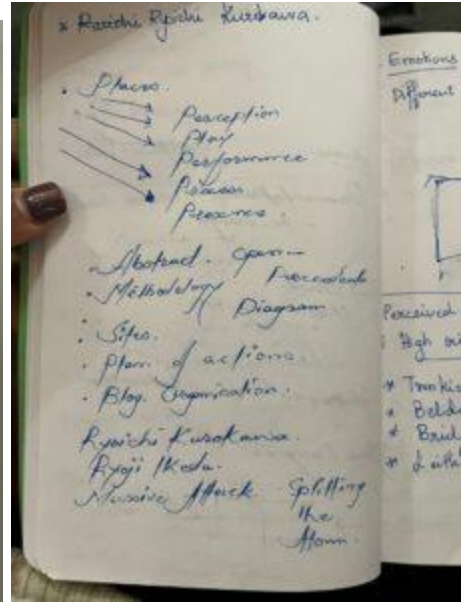 * Ryoichi Kurokawa.
• Places.
Perception
Play
Performance
Process
Presence.
• Abstract. open-
• Methodology
Diagram.
• Sites.
• Plan of actions.
• Blog. Organisation.
Ryoichi Kurokawa.
Ryoji Ikeda.
Massive Attack. Splitting
the
Atom.
Emotions
Different
Perceived
High